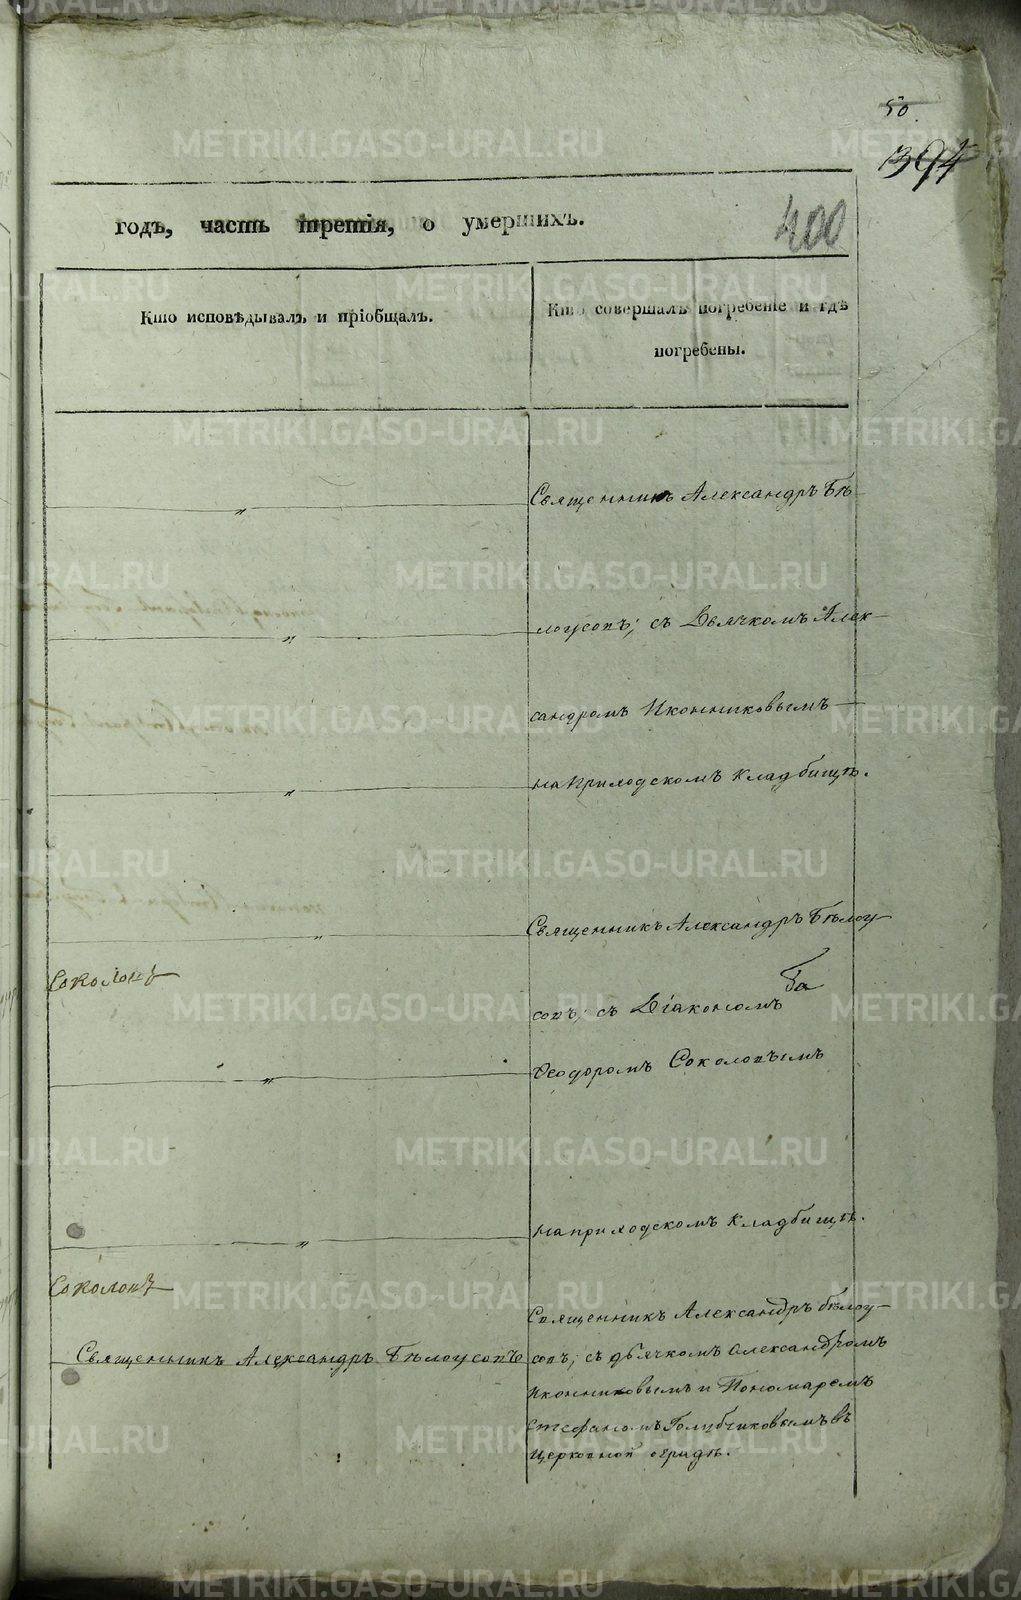 50.
394
400
годъ, часть третія, о умершихъ.
Кто исповѣдывалъ и пріобщалъ.
Кто совершалъ погребеніе и гдѣ
погребены.
Священникъ Александръ Бѣ-
лоусовъ; съ Дьячкомъ Алек-
сандромъ Иконниковымъ
на приходскомъ кладбищѣ.
Священникъ Александръ Бѣлоу-
Соколовъ
совъ; съ Діакономъ
Ѳеодоромъ Соколовымъ
на приходскомъ кладбищѣ.
Соколовъ
Священникъ Александръ Бѣлоу-
Священникъ Александръ Бѣлоусовъ
совъ; съ дьячкомъ Александромъ
Иконниковымъ и Пономаремъ
Стефаномъ Голубчиковымъ въ
церковной оградѣ.
METRIKI.GASO-URAL.RU